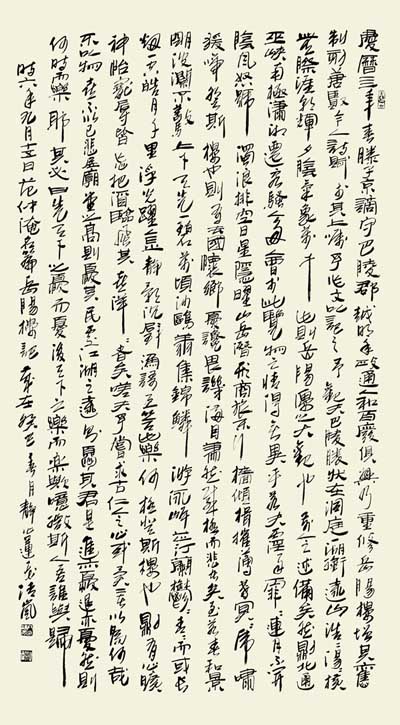 慶曆三年春滕子京謫守巴陵郡越明年政通人和百廢俱興乃重修岳陽樓增其舊
制刻唐賢今人詩賦於其上屬予作文以記之予觀夫巴陵勝狀在洞庭一湖銜遠山吞長江浩浩湯湯橫
無際涯朝暉夕陰氣象萬千此則岳陽樓之大觀也前人之述備矣然則北通
巫峽南極瀟湘遷客騷人多會於此覽物之情得無異乎若夫霪雨霏霏連月不開
陰風怒號濁浪排空日星隱曜山岳潛形商旅不行檣傾楫摧薄暮冥冥虎嘯
猿啼登斯樓也則有去國懷鄉憂讒畏譏滿目蕭然感極而悲者矣至若春和景
明波瀾不驚上下天光一碧萬頃沙鷗翔集錦鱗游泳岸芷汀蘭郁郁青青而或長
煙一空皓月千里浮光躍金靜影沉璧漁歌互答此樂何極登斯樓也則有心曠
神怡寵辱皆忘把酒臨風其喜洋洋者矣嗟夫予嘗求古仁人之心或異二者之為何哉
不以物喜不以己悲居廟堂之高則憂其民處江湖之遠則憂其君是進亦憂退亦憂然則
何時而樂耶其必曰先天下之憂而憂後天下之樂而樂歟噫微斯人吾誰與歸
時六年九月十五日范仲淹岳陽樓記歲在癸巳春月靜蓮清嵐